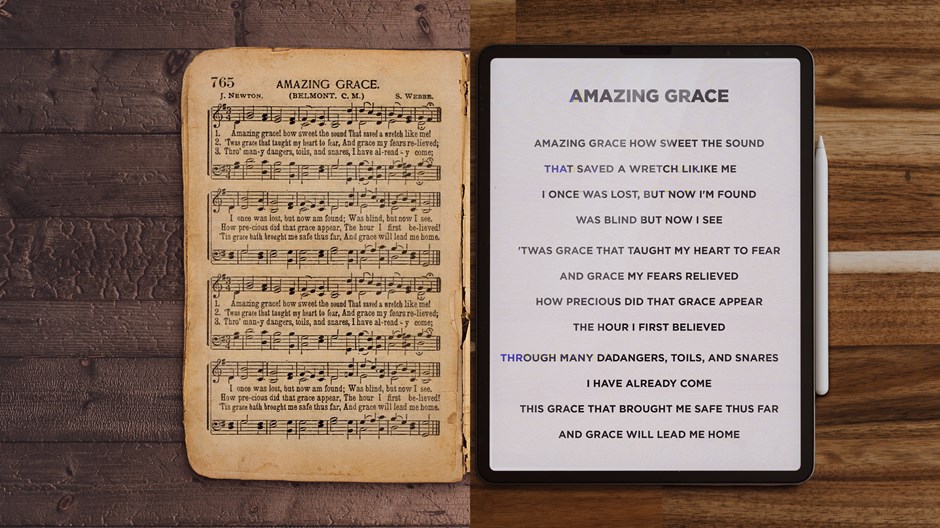 765 AMAZING GRACE.
J. NEWTON. (BELMONT. C. M.) S. WEBBE.
1. Amazing grace! how sweet the sound That saved a wretch like me!
2. 'Twas grace that taught my heart to fear, And grace my fears re-lieved;
3. Thro' man-y dangers, toils, and snares, I have al-read-y come;
I once was lost, but now am found; Was blind, but now I see.
How pre-cious did that grace appear, The hour I first be-lieved!
'Tis grace hath brought me safe thus far, And grace will lead me home.
1. Amazing grace! how sweet the sound That saved a wretch like me!
2. 'Twas grace that taught my heart to fear, And grace my fears re-lieved;
3. Thro' man-y dangers, toils, and snares, I have al-read-y come;
I once was lost, but now am found; Was blind, but now I see.
How pre-cious did that grace appear, The hour I first be-lieved!
'Tis grace hath brought me safe thus far, And grace will lead me home.
AMAZING GRACE
AMAZING GRACE HOW SWEET THE SOUND
THAT SAVED A WRETCH LIKIKE ME
I ONCE WAS LOST, BUT NOW I'M FOUND
WAS BLIND BUT NOW I SEE
'TWAS GRACE THAT TAUGHT MY HEART TO FEAR
AND GRACE MY FEARS RELIEVED
HOW PRECIOUS DID THAT GRACE APPEAR
THE HOUR I FIRST BELIEVED
THROUGH MANY DADANGERS, TOILS, AND SNARES
I HAVE ALREADY COME
THIS GRACE THAT BROUGHT ME SAFE THUS FAR
AND GRACE WILL LEAD ME HOME